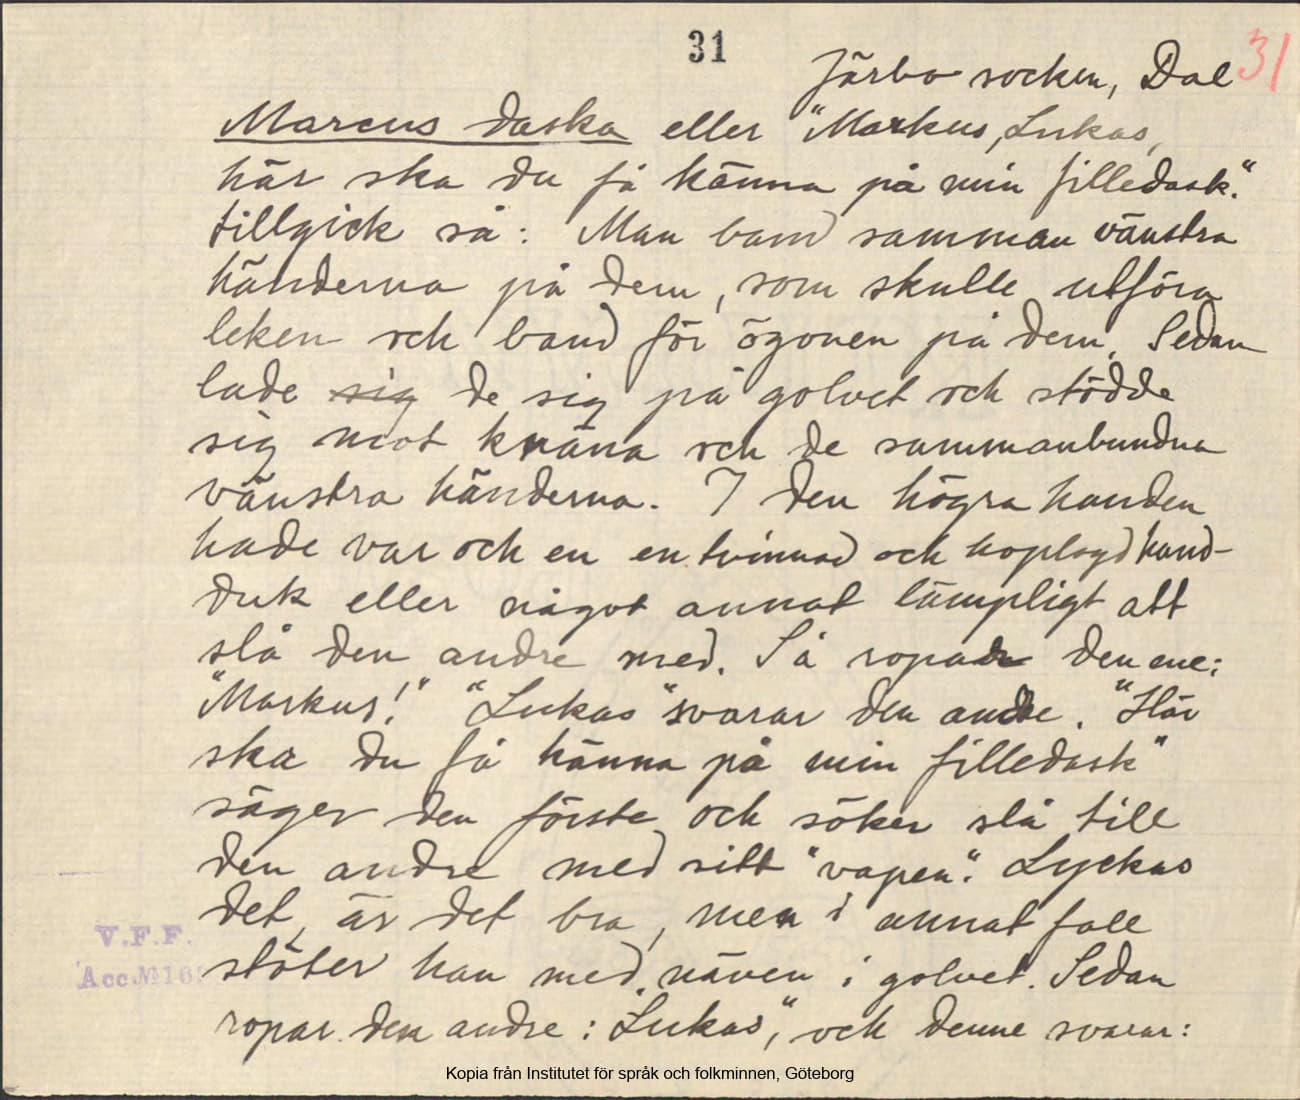 31
31
Järbo socken, Dal
Marcus daska eller "Markus, Lukas,
här ska du få känna på min filledask."
tillgick så: Man band samman vänstra
händerna på dem, som skulle utföra
leken och band för ögonen på dem. Sedan
lade sig de sig på golvet och stödde
sig mot knäna och de sammanbundna
vänstra händerna. I den högra handen
hade var och en en tvinnad och hoplagd hand-
duk eller något annat lämpligt att
slå den andre med. Så ropade den ene:
"Markus!" "Lukas" svarar den andre. "Här
ska du få känna på min filledask"
säger den förste och söker slå till
den andre med sitt "vapen". Lyckas
det, är det bra, men i annat fall
stöter han med näven i golvet. Sedan
ropar den andre: "Lukas", och denne svarar:
V.F.F.
Acc. № 16
Kopia från Institutet för språk och folkminnen, Göteborg